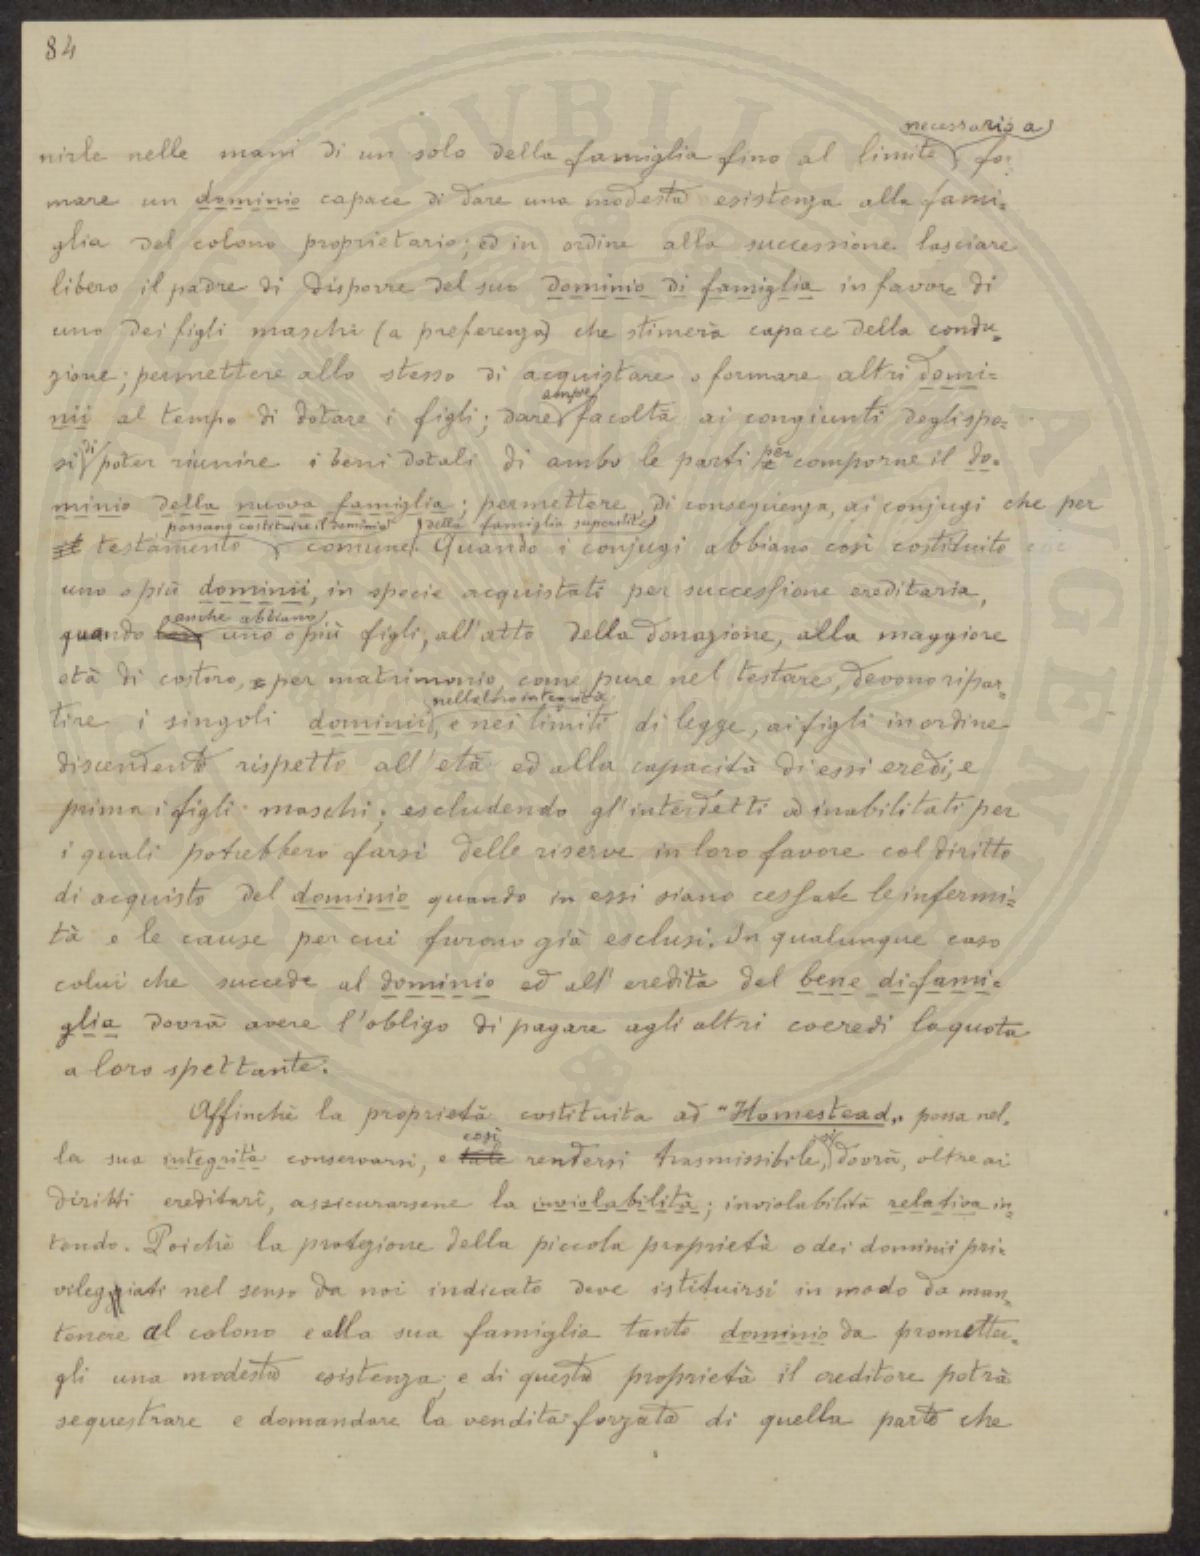 84
necessario a
nirle nelle mani di un solo della famiglia fino al limite for
mare un dominio capace di dare una modesta esistenza alla fami=
glia del colono proprietario; ed in ordine alla successione lasciare
libero il padre di disporre del suo dominio di famiglia in favore di
uno dei figli maschi (a preferenza) che stimerà capace della condu=
zione; permettere allo stesso di acquistare o formare altri domi=
nii al tempo di dotare i figli; dare facoltà ai congiunti degli spo=
si di poter riunire i beni dotali di ambo le parti per comporne il do=
minio della nuova famiglia; permettere, di conseguenza, ai conjugi che per
possano costituire il dominio della famiglia superstite
testamento comune. Quando i conjugi abbiano così costituito
uno o più dominii, in specie acquistati per successione ereditaria,
anche abbiano
quando uno o più figli, all'atto della donazione, alla maggiore
età di costoro, e per matrimonio, come pure nel testare, devono ripar=
nella loro integrità
tire i singoli dominii, e nei limiti di legge, ai figli in ordine
discendente rispetto all'età ed alla capacità di essi eredi, e
prima i figli maschi; escludendo gl'interdetti ed inabilitati per
i quali potrebbero farsi delle riserve in loro favore col diritto
di acquisto del dominio quando in essi siano cessate le infermi=
tà e le cause per cui furono già esclusi. In qualunque caso
colui che succede al dominio ed all'eredità del bene di fami=
glia dovrà avere l'obligo di pagare agli altri coeredi la quota
a loro spettante.
Affinchè la proprietà costituita ad "Homestead" possa nel=
così
la sua integrità conservarsi, e tale rendersi trasmissibile, si dovrà, oltre ai
diritti ereditarî, assicurarsene la inviolabilità; inviolabilità relativa in=
tendo. Poichè la protezione della piccola proprietà o dei dominii pri=
vilegiati nel senso da noi indicato deve istituirsi in modo da man=
tenere al colono e alla sua famiglia tanto dominio da prometter=
gli una modesta esistenza; e di questa proprietà il creditore potrà
sequestrare e domandare la vendita forzata di quella parte che